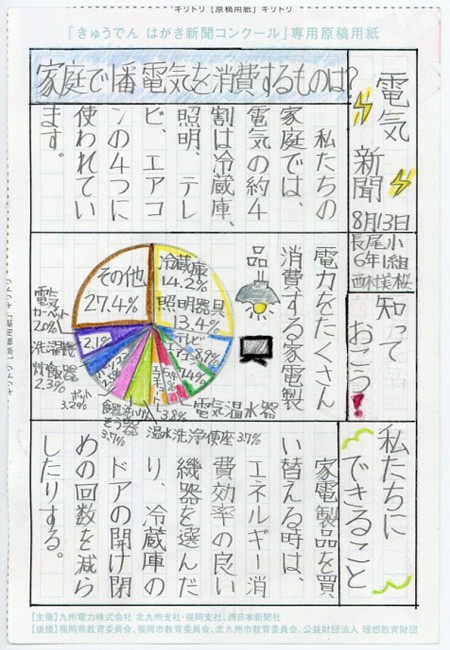 キリトリ [原稿用紙] キリトリ
「きゅうでん はがき新聞コンクール」専用原稿用紙
電気新聞
8月13日
長尾小
6年1組
家庭で1番電気を消費するものは?
私たちの
家庭では、
電気の約4
割は冷蔵庫、
照明、テレ
ビ、エアコ
ンの4つに
使われてい
ます。
知って
おこう!
電力をたくさん
消費する家電製
品
冷蔵庫
14.2%
照明器具
13.4%
テレビ
8.9%
電気温水器
温水洗浄便座3.7%
3.8%
食器
3.7%
ポット
3.2%
炊飯器
2.3%
洗濯機
2.1%
電気
カーペット
2.0%
その他
27.4%
私たちに
できること
家電製品を買
い替える時は、
エネルギー消
費効率の良い
機器を選んだ
り、冷蔵庫の
ドアの開け閉
めの回数を減ら
したりする。
【主催】九州電力株式会社 北九州支社・福岡支社、西日本新聞社
【後援】福岡県教育委員会、福岡市教育委員会、北九州市教育委員会、公益財団法人 理想教育財団